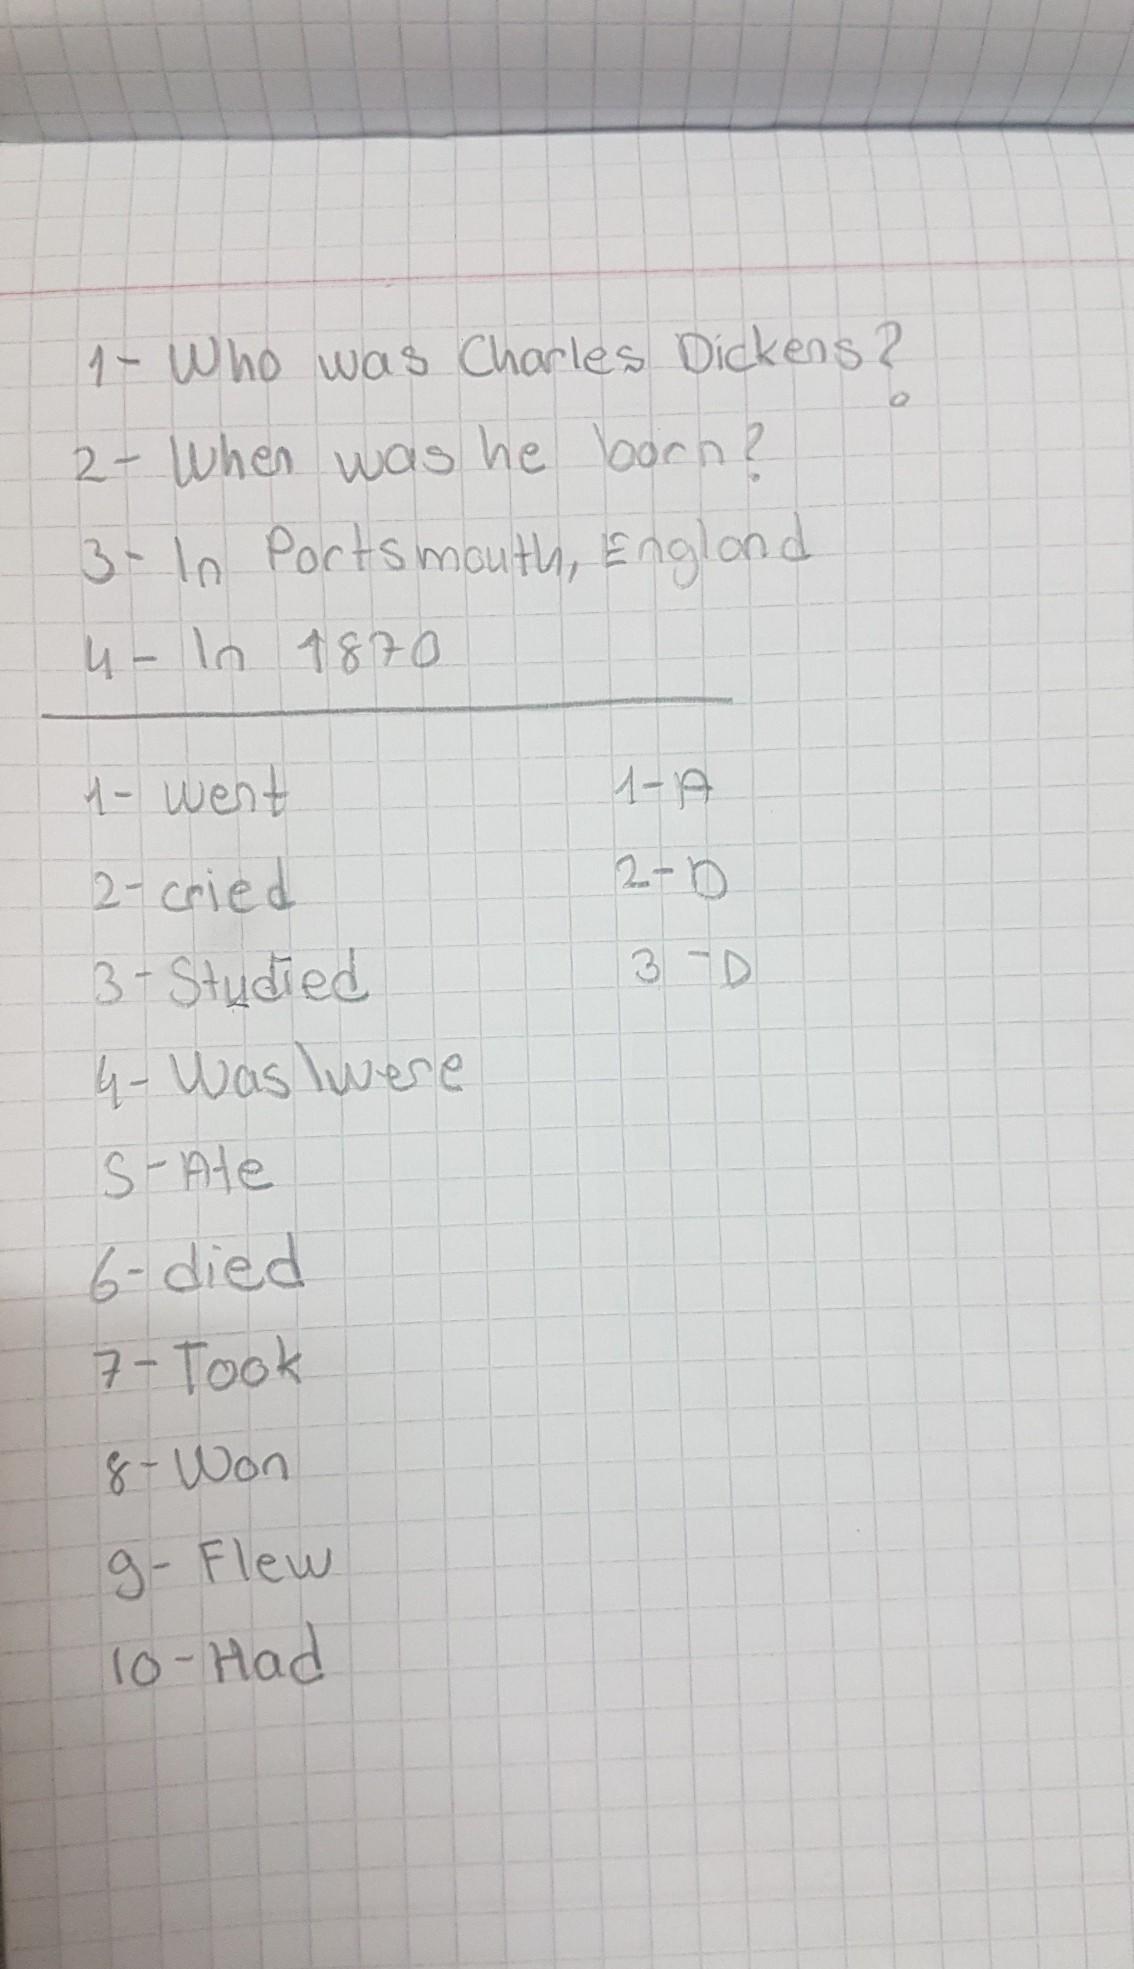 1- Who was Charles Dickens?
2- When was he born?
3- In Portsmouth, England
4- In 1870
1- went
2- cried
3- Studied
4- Was\were
5- Ate
6- died
7- Took
8- Won
9- Flew
10- Had
1- A
2- D
3- D